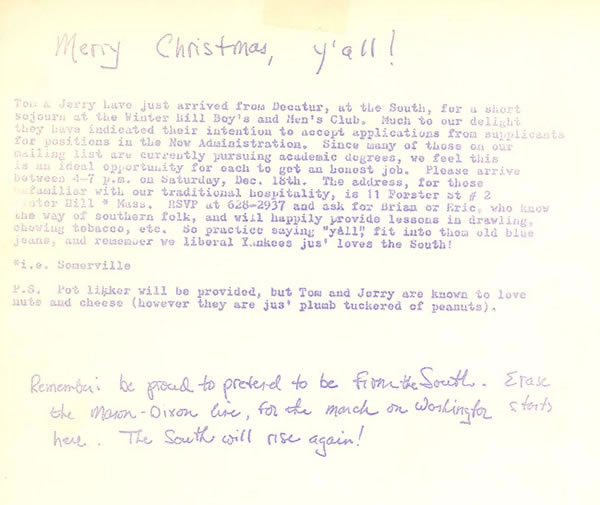 Merry Christmas, y'all!
Tom & Jerry have just arrived from Decatur, at the South, for a short
sojourn at the Winter Hill Boy's and Men's Club. Much to our delight
they have indicated their intention to accept applications from supplicants
for positions in the New Administration. Since many of those on our
mailing list are currently pursuing academic degrees, we feel this
is an ideal opportunity for each to get an honest job. Please arrive
between 4-7 p.m. on Saturday, Dec. 18th. The address, for those
unfamiliar with our traditional hospitality, is 11 Forster St # 2
Winter Hill * Mass. RSVP at 628-2937 and ask for Brian or Eric, who know
the way of southern folk, and will happily provide lessons in drawling,
chewing tobacco, etc. So practice saying "y'all", fit into them old blue
jeans, and remember we liberal Yankees jus' loves the South!
*i.e. Somerville
P.S. Pot likker will be provided, but Tom and Jerry are known to love
nuts and cheese (however they are jus' plumb tuckered of peanuts).
Remember: be proud to pretend to be from the South. Erase
the Mason-Dixon line, for the march on Washington starts
here. The South will rise again!